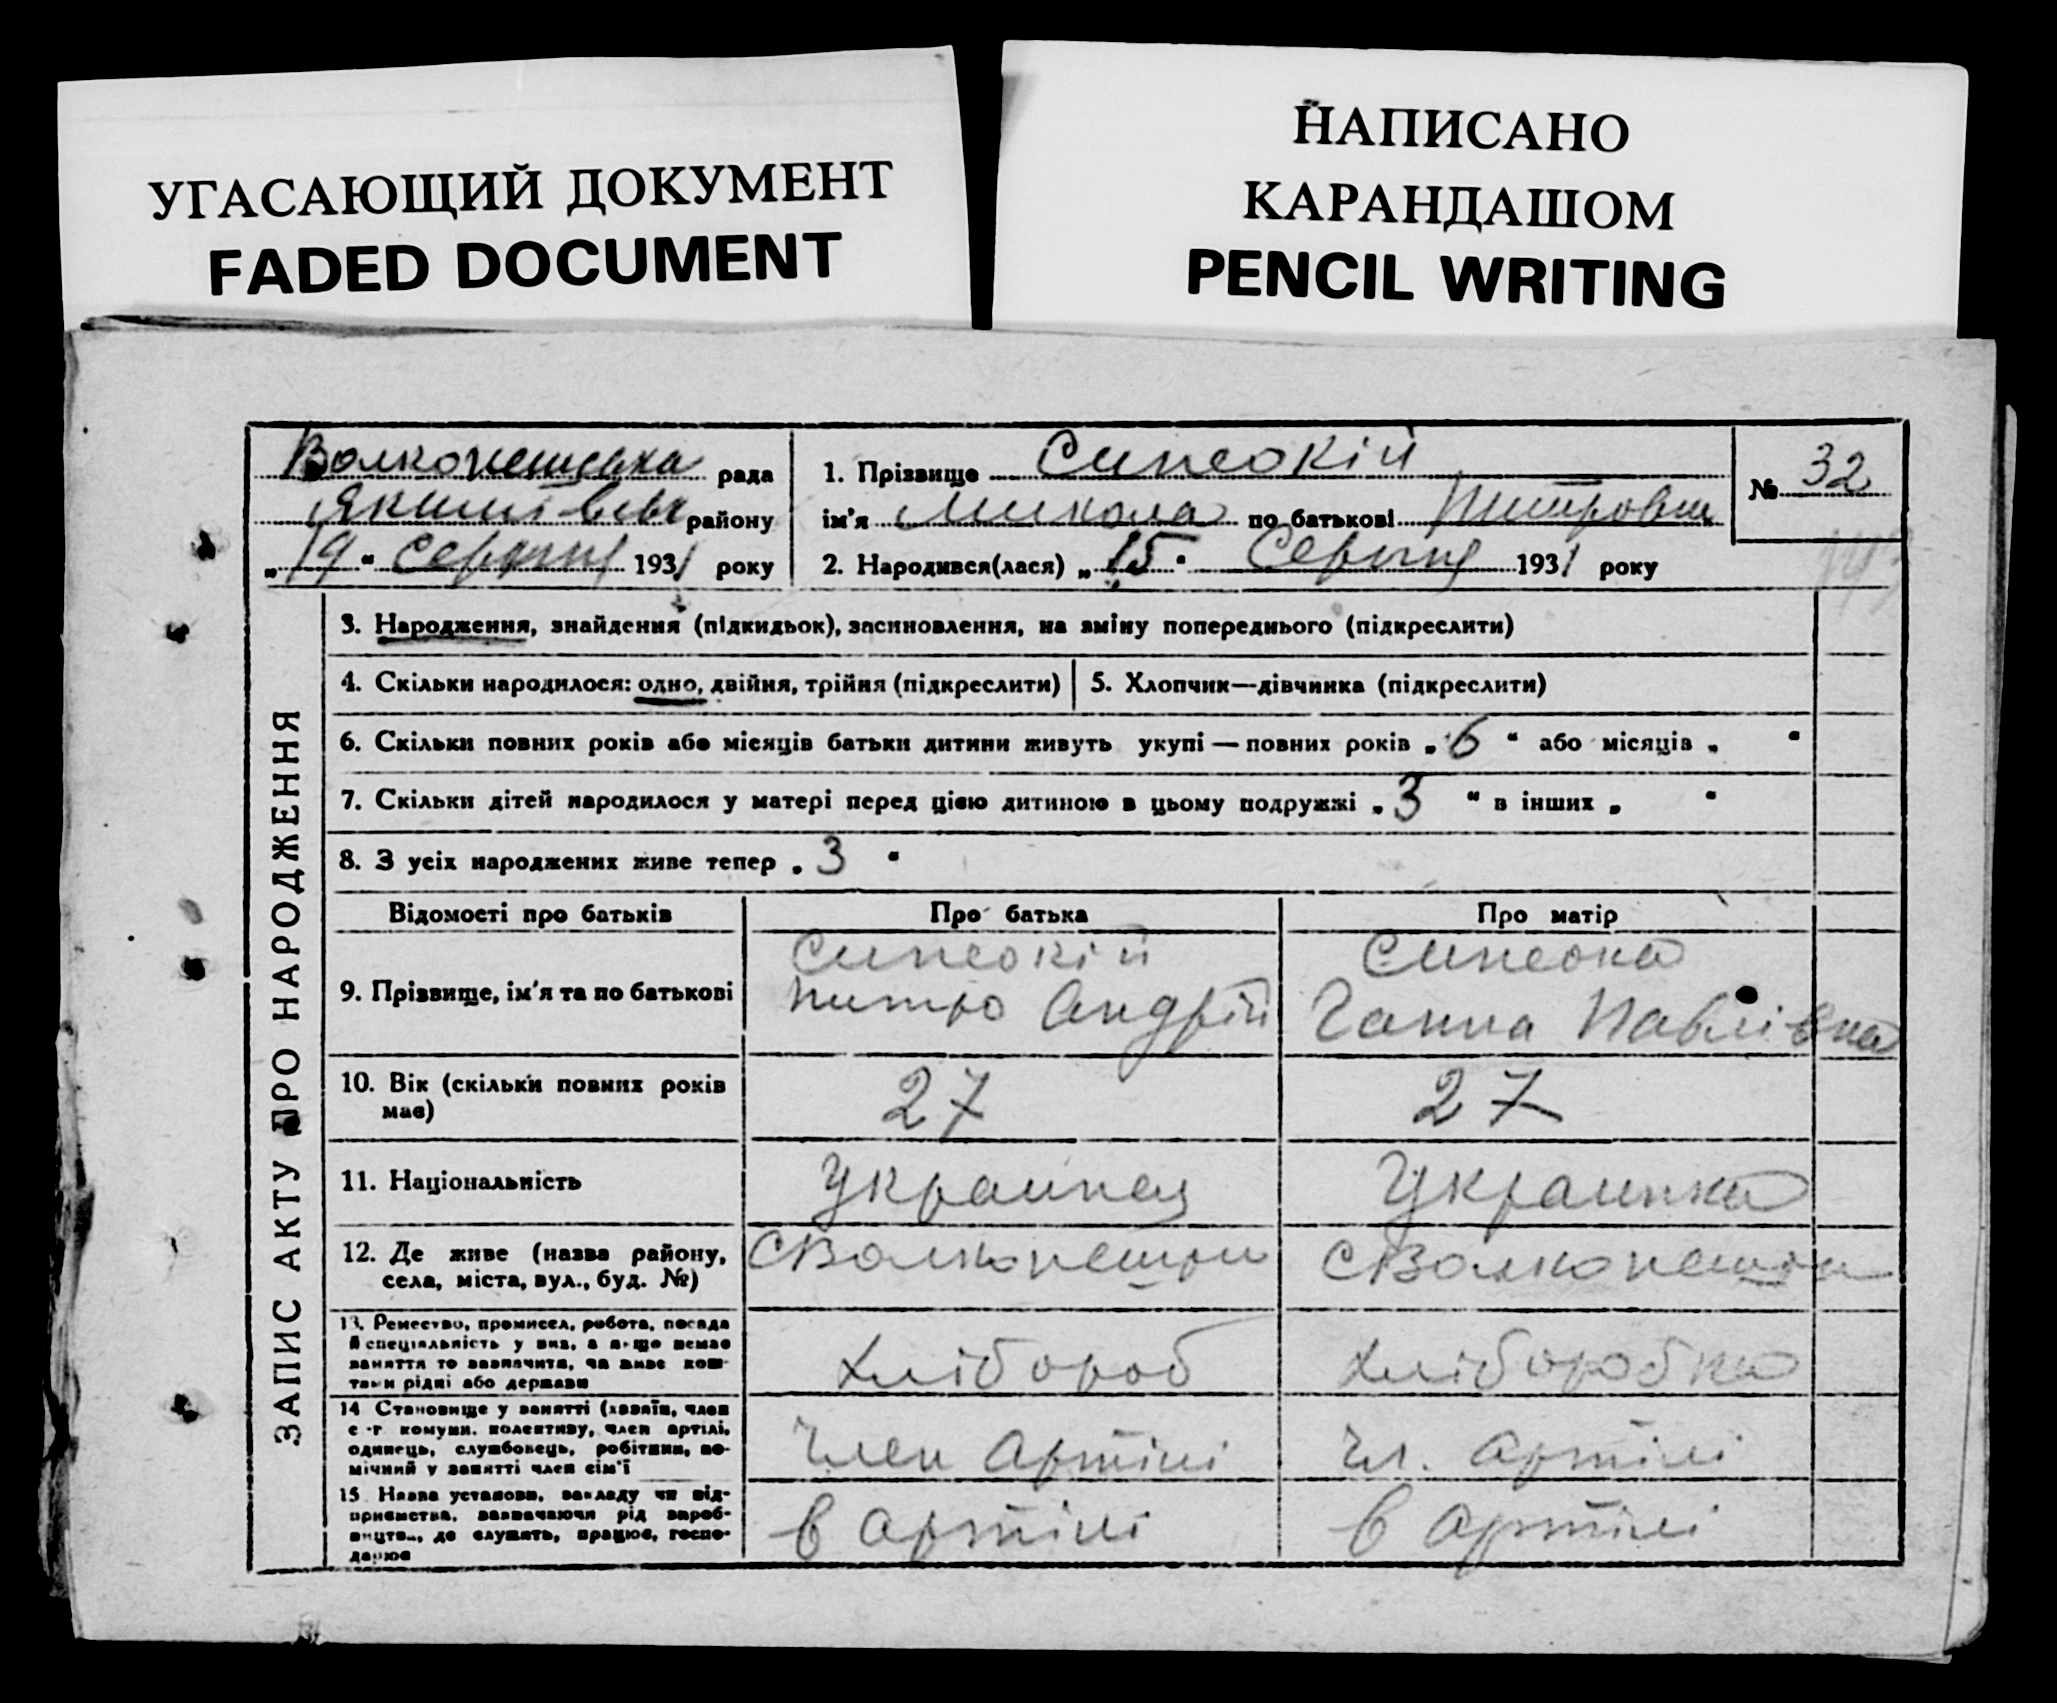 УГАСАЮЩИЙ ДОКУМЕНТ
FADED DOCUMENT
НАПИСАНО
КАРАНДАШОМ
PENCIL WRITING
рада
району
„19“ Серпня 1931 року
1. Прізвище Синеокій
ім'я Микола по батькові
2. Народився(лася) „15“ Серпня 1931 року
№ 32
ЗАПИС АКТУ ПРО НАРОДЖЕННЯ
3. Народження, знайдення (підкидьок), засиновлення, на зміну попереднього (підкреслити)
4. Скільки народилося: одно, двійня, трійня (підкреслити)
5. Хлопчик—дівчинка (підкреслити)
6. Скільки повних років або місяців батьки дитини живуть укупі — повних років „6“ або місяців „ “
7. Скільки дітей народилося у матері перед цією дитиною в цьому подружжі „3“ в інших „ “
8. З усіх народжених живе тепер „3“
Відомості про батьків
Про батька
Про матір
9. Прізвище, ім'я та по батькові
Синеокій
Митро Андрій
Синеока
Ганна Павлівна
10. Вік (скільки повних років
має)
27
27
11. Національність
Украинец
Украинка
12. Де живе (назва району,
села, міста, вул., буд. №)
13. Ремество, промисел, робота, посада
й спеціяльність у них, а якщо немає
заняття то зазначити, чи живе кош-
тами рідні або держави
Хлібороб
Хліборобка
14 Становище у занятті (хазяїн, член
с.-г комуни, колективу, член артілі,
одинець, службовець, робітник, по-
мічний у занятті член сім'ї
Член Артілі
Чл. Артілі
15. Назва установи, закладу чи під-
приємства, зазначаючи рід вироб-
ництва, де служить, працює, госпо-
дарює
в Артілі
в Артілі